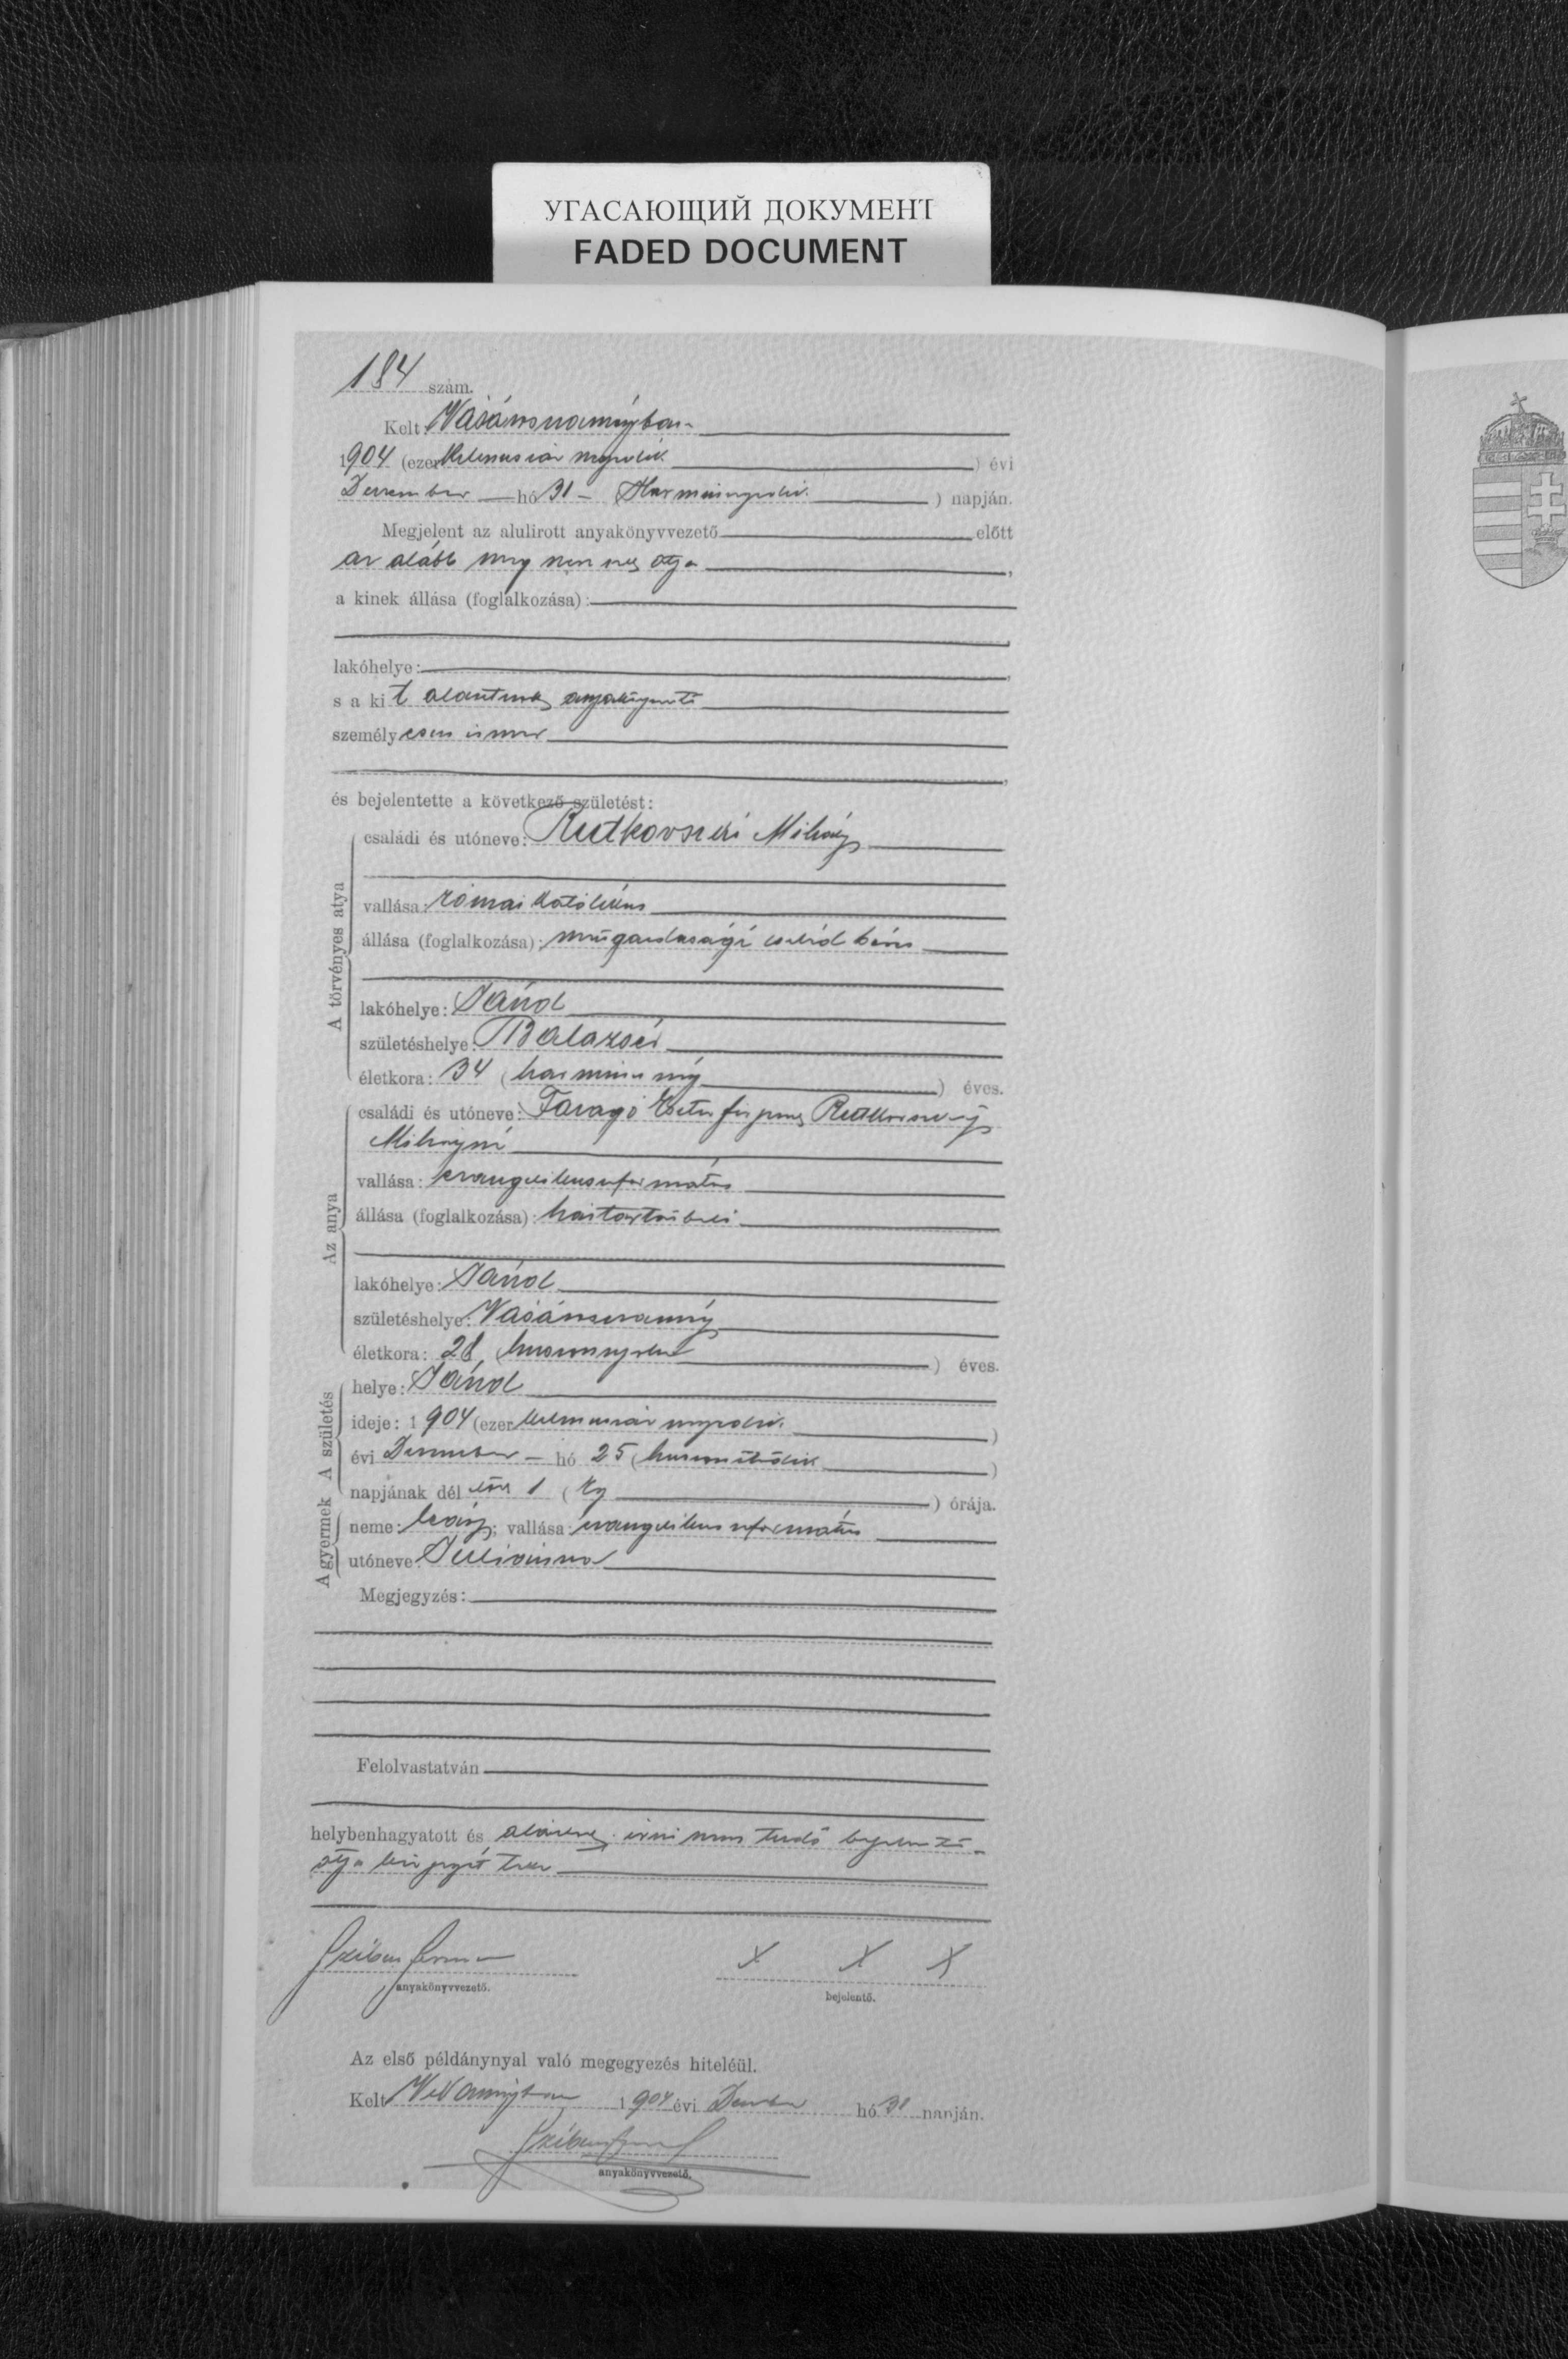 УГАСАЮЩИЙ ДОКУМЕНТ
FADED DOCUMENT
184 szám.
Kelt Vásárosnaményban
1904 (ezerkilencszáz negyedik ) évi
December hó 31 - Harminczegyedik ) napján.
Megjelent az alulirott anyakönyvvezető előtt
az alább meg nevezett atya,
a kinek állása (foglalkozása):
lakóhelye:
s a kit alantirott anyakönyvvezető
személyesen ismer
és bejelentette a következő születést:
A törvényes atya
családi és utóneve: Rutkovszki Mihály
vallása: római katolikus
állása (foglalkozása): mezőgazdasági cseléd béres
lakóhelye: Jánd
születéshelye: Balazsér
életkora: 34 (harmincz négy ) éves.
Az anya
családi és utóneve: Faragó Eszter férjezett Rutkovszky
Mihályné
vallása: evangelikus református
állása (foglalkozása): háztartásbeli
lakóhelye: Jánd
születéshelye: Vásárosnamény
életkora: 28 (huszonnyolcz ) éves.
A születés
helye: Jánd
ideje: 1904 (ezerkilenczszáz negyedik )
évi December - hó 25 (huszonötödik )
napjának dél előtt 1 (Egy ) órája.
A gyermek
neme: leány; vallása: evangelikus református
utóneve: Juliánna
Megjegyzés:
Felolvastatván
helybenhagyatott és irni nem tudó bejelentő
atya kézjegyét
anyakönyvvezető.
X X X
bejelentő.
Az első példánynyal való megegyezés hiteléül.
Kelt 1904 évi December hó 31 napján.
anyakönyvvezető.